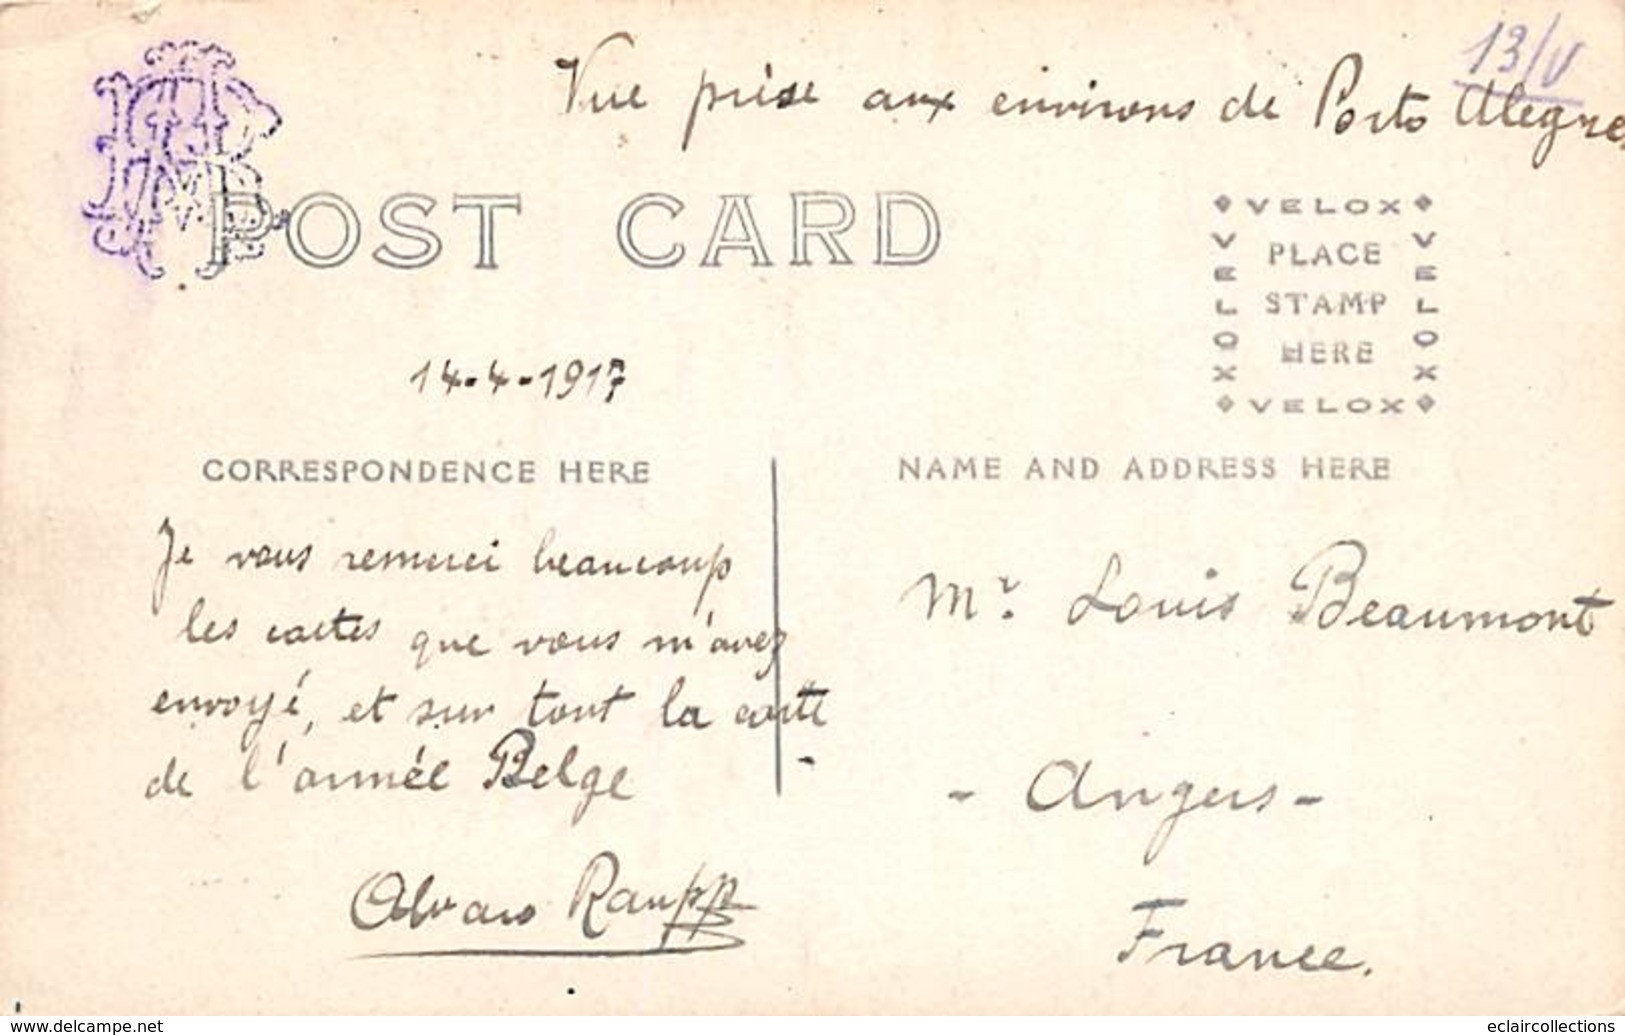 13/V
Vue prise aux environs de Porto Alegre.
POST CARD
VELOX
VELOX
PLACE
STAMP
HERE
VELOX
VELOX
14-4-1917
CORRESPONDENCE HERE
NAME AND ADDRESS HERE
Je vous remerci beaucoup
les cartes que vous m'avez
envoyé, et sur tout la carte
de l'armée Belge
Alvaro Raupp
Mr. Louis Beaumont
- Angers -
France.
www.delcampe.net
eclaircollections